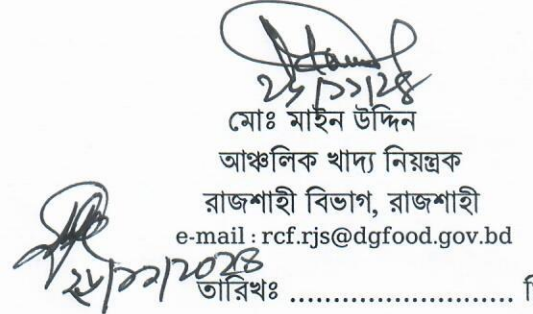 ২৮/১১/২৪
মোঃ মাইন উদ্দিন
আঞ্চলিক খাদ্য নিয়ন্ত্রক
রাজশাহী বিভাগ, রাজশাহী
e-mail : rcf.rjs@dgfood.gov.bd
২৮/১১/২০২৪
তারিখঃ ...........................